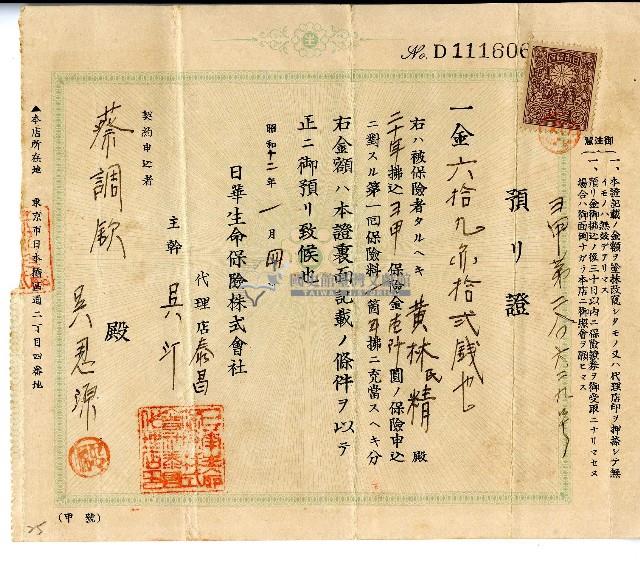 No. D 111606
御注意
一、本證記載ノ金額ヲ塗抹改竄シタルモノ又ハ代理店印ヲ押捺シテ無
イモノハ無效デアリマス
一、預リ金御拂込ノ後三十日以内ニ保險證券ヲ御受取ニナリマセヌ
場合ハ御面倒ナガラ本店ニ御照會ヲ願ヒマス
預リ證
一金六拾九円拾弐銭也
右ハ被保險者タルヘキ 黄林氏精 殿
二十年拂込ヨ甲 保險金壱阡圓ノ保險申込
ニ對スル第一回保險料一箇年拂ニ充當スヘキ分
右金額ハ本證裏面記載ノ條件ヲ以テ
正ニ御預リ致候也
昭和十二年一月四
日華生命保險株式會社
代理店 泰昌
主幹
契約申込者
蔡調欽 殿
▲本店所在地 東京市日本橋區通二丁目四番地
(甲 號)
25